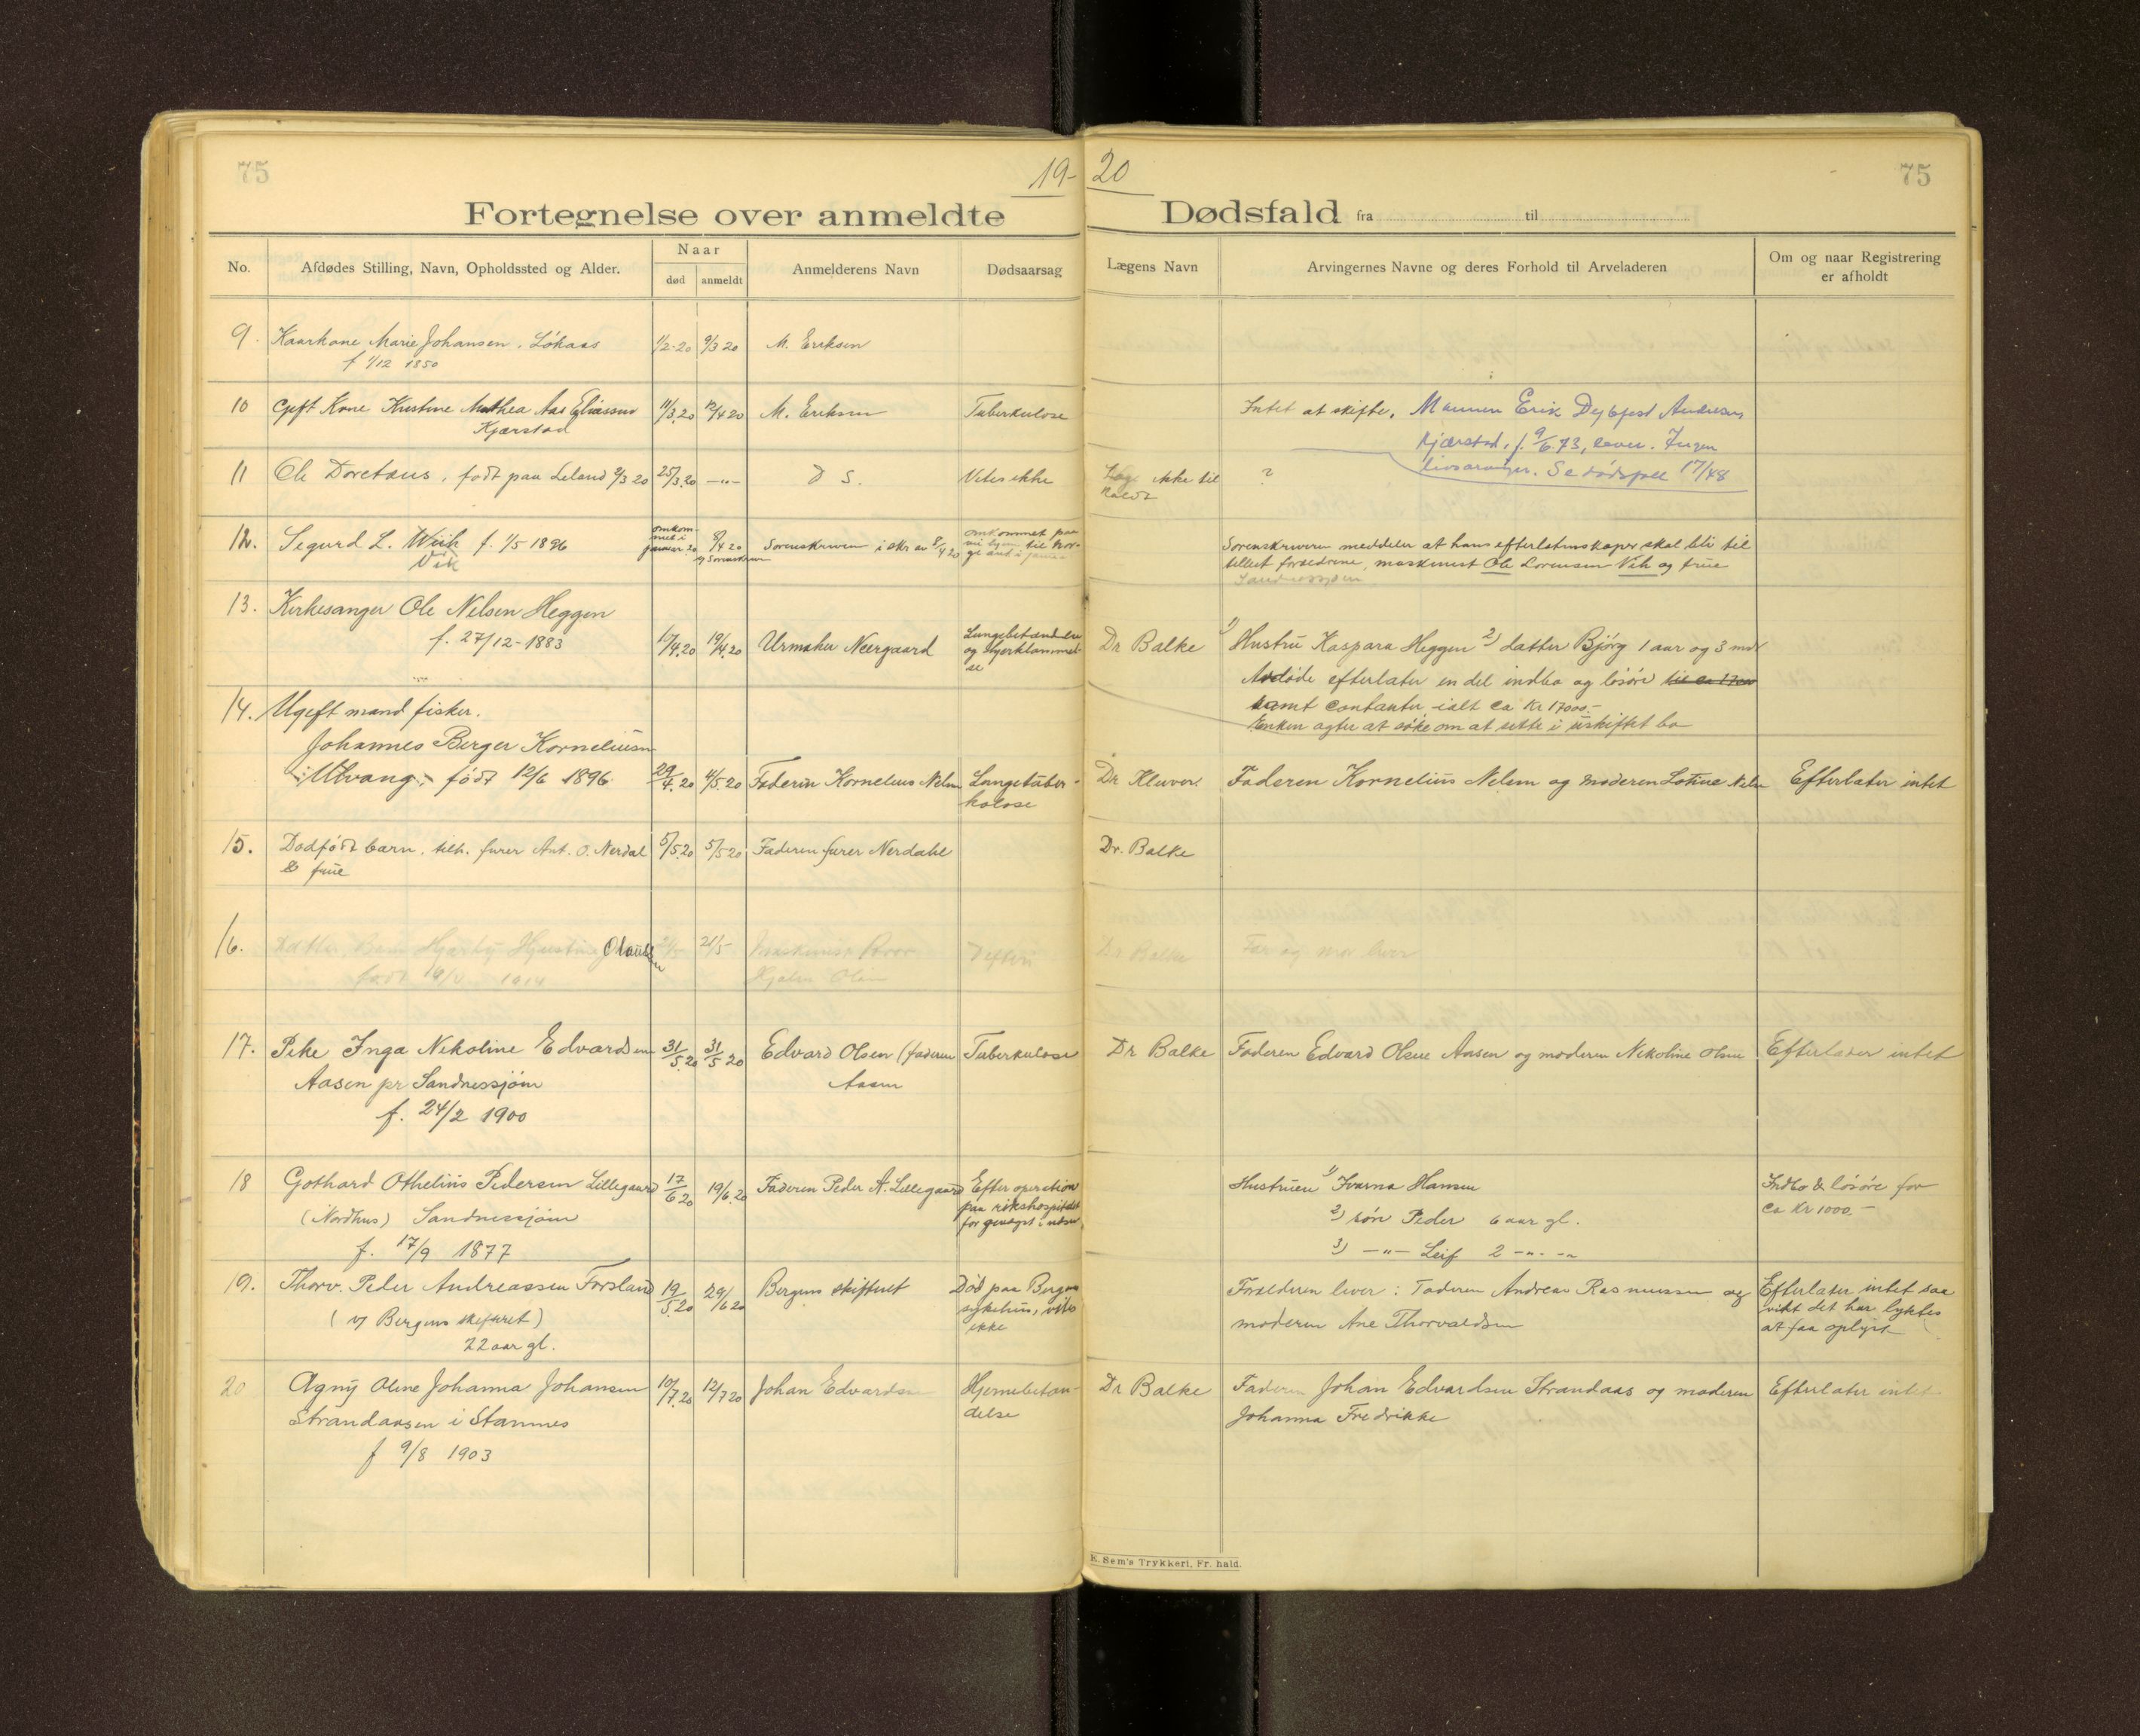 75
19-
20
75
Fortegnelse over anmeldte
Dødsfald fra til
No.
Afdødes Stilling, Navn, Opholdssted og Alder.
Naar
død
anmeldt
Anmelderens Navn
Dødsaarsag
Lægens Navn
Arvingernes Navne og deres Forhold til Arveladeren
Om og naar Registrering
er afholdt
9. Kaarkone Marie Johansen. Løkaas 1/2-20 9/3 20 M. Eriksen
f 1/12 1850
10 Gift Kone Kristine Mathea Aas Eliassen 11/3.20 12/4 20 M. Eriksen Tuberkulose
Kjærstad
Intet at skifte. Mannen Erik Andresen
Kjærstad, f. 9/6.73, lever. Ingen
livsarvinger. Se dødsfall 17/48
11 Ole Doretius, født paa Leland 2/3 20 25/3.20 -"- D S. Vites ikke
Læge ikke til
kaldt
?
12. Sigurd L. Wiik f. 1/5 1896
Vik
omkom-
met i
januar 20
8/4 20
Sorenskriveren i skr av 8/4 20
omkommet paa
til Nor-
ge
Sorenskriveren meddeler at hans efterlatenskaper skal bli til
stillet forældrene, maskinist Ole Lorensen Vik og frue
Sandnessjøen
13. Kirkesanger Ole Nelsen Heggen
f. 27/12-1883 19/4.20 Urmaker Neergaard
Lungebetændelse
og Hjerklammel-
se
Dr Balke
1) Hustru Kaspara Heggen 2) datter Bjørg 1 aar og 3 mdr
Avdøde efterlater en del indbo og løsøre til ca 17000
samt contanter ialt ca Kr 17000.-
Enken agter at søke om at sitte i uskiftet bo
14. Ugift mand fisker.
Johannes Berger Korneliusen
Ulvang, født 12/6 1896 29/4.20 4/5.20 Faderen Kornelius Nelsen Lungetuber-
kolose
Dr Kluwer. Faderen Kornelius Nelsen og moderen Lotine Nelsen Efterlater intet
15. Dødfødt barn. tilh. furer Ant. O. Nerdal 5/5.20 5/5 20 Faderen furer Nerdahl
& frue
Dr. Balke
16. Olausen 21/5
Difteri Dr Balke Far og mor lever
17. Pike Inga Nikoline Edvardsen 31/5.20 31/5 20 Edvard Olsen (faderen Tuberkulose
Aasen pr Sandnessjøen Aasen
f. 24/2 1900
Dr Balke Faderen Edvard Olsen Aasen og moderen Nikoline Olsen Efterlater intet
18 Gothard Othelius Pedersen Lillegaard 17/6 20 19/6.20 Faderen Peder A. Lillegaard
(Nordhus) Sandnessjøen
f. 17/9 1877
Efter operation
paa rikshospitalet
for gevægst i
Hustruen 1) Ivarna Hansen
2) søn Peder 6 aar gl.
3) -"- Leif 2 -"- -"-
Indbo & løsøre for
ca Kr 1000.-
19. Thorv. Peder Andreassen Forsland 19/5.20 29/6 20 Bergens skifteret
(v/ Bergens skifteret)
22 aar gl.
Død paa Bergens
sykehus, vites
ikke
Forældrene lever: Faderen Andreas Rasmussen og
moderen Ane Thorvaldsen
Efterlater intet saa
vidt det har lyktes
at faa oplyst
20 Agny Oline Johanna Johansen 10/7.20 12/7 20 Johan Edvardsen
Strandaasen i Stamnes
f 9/8 1903
Hjernebetæn-
delse
Dr Balke Faderen Johan Edvardsen Strandaas og moderen
Johanna Fredrikke
Efterlater intet
E. Sem's Trykkeri, Fr. hald.